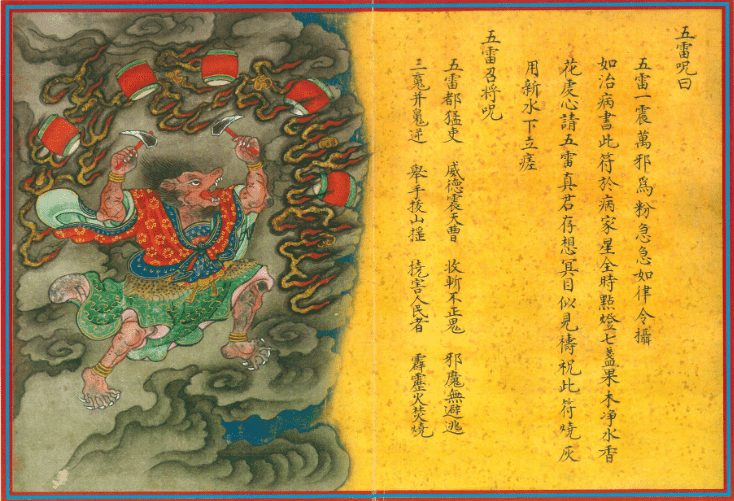 五雷呪曰
五雷一震萬邪爲粉急急如律令攝
如治病書此符於病家星全時點燈七盞果木净水香
花虔心請五雷真君存想冥目似見禱祝此符燒灰
用新水下立痊
五雷召將呪
五雷都猛吏 威德震天曹 收斬不正鬼 邪魔無避逃
三 逆 舉手拔山搖 撓害人民者 霹靂火焚燒